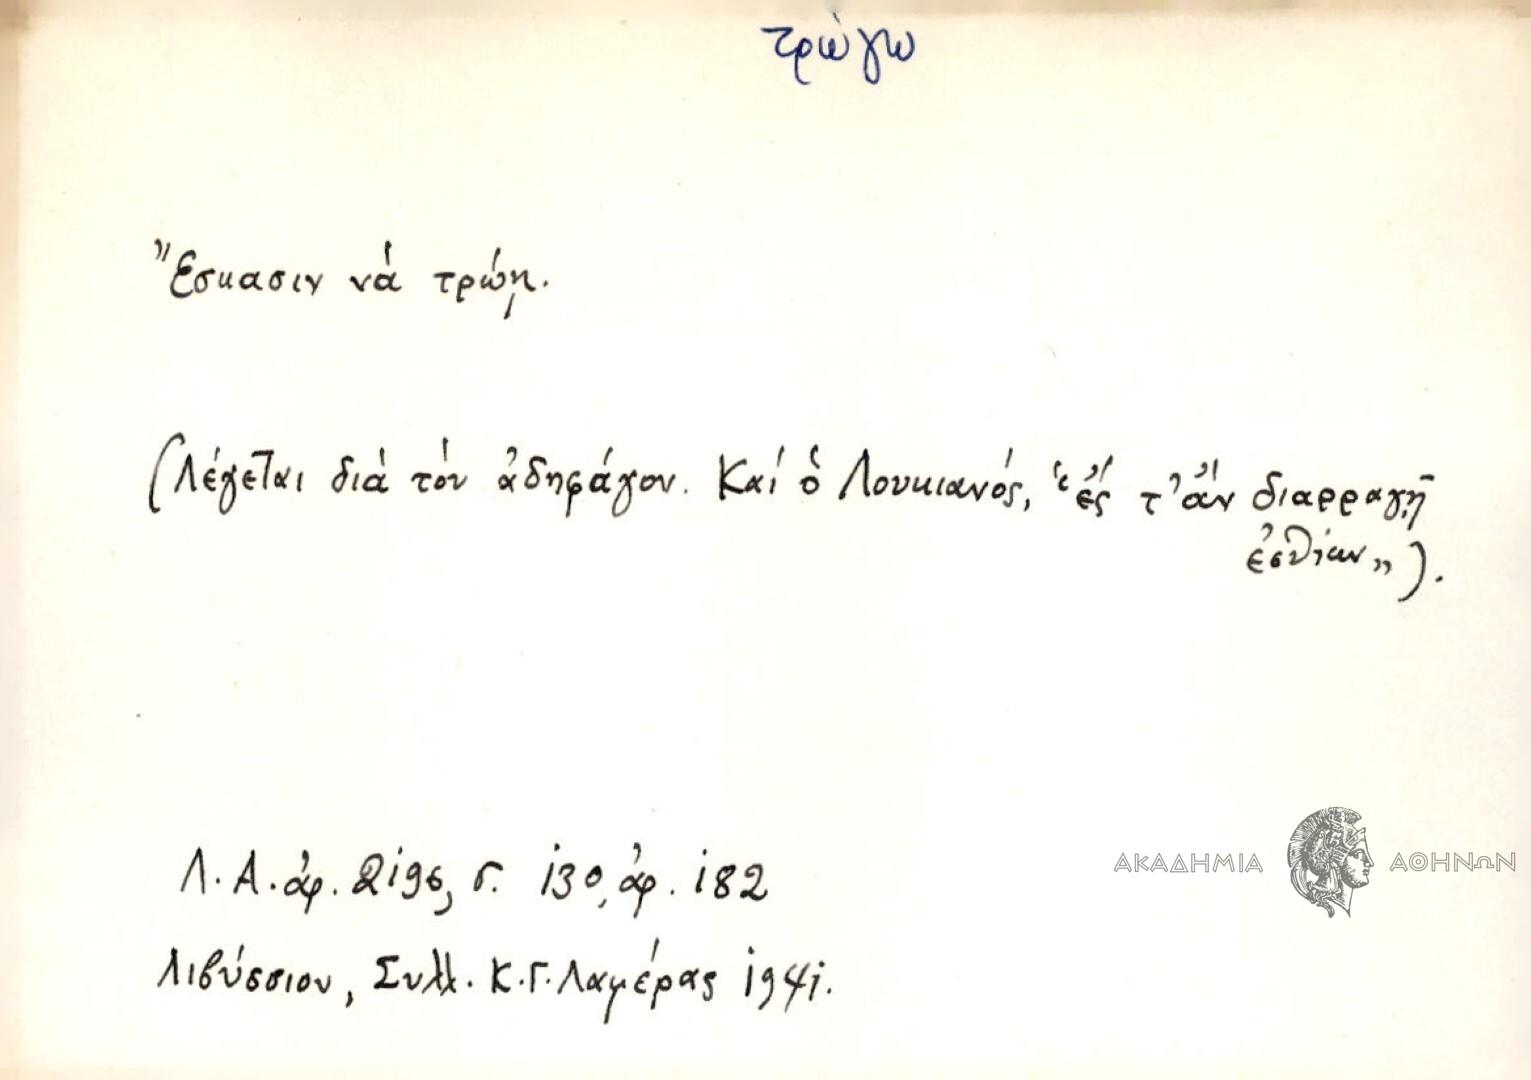 τρώγω
Ἔσκασιν νά τρώῃ.
(Λέγεται διά τόν ἀδηφάγον. Καί ὁ Λουκιανός, “ἔς τ᾽ ἄν διαρραγῇ
ἐσθίων„).
Λ.Α. ἀρ. 2196, σ. 130, ἀρ. 182
Λιβύσσιον, Συλλ. Κ.Γ. Λαμέρας 1941.
ΑΚΑΔΗΜΙΑ ΑΘΗΝΩΝ